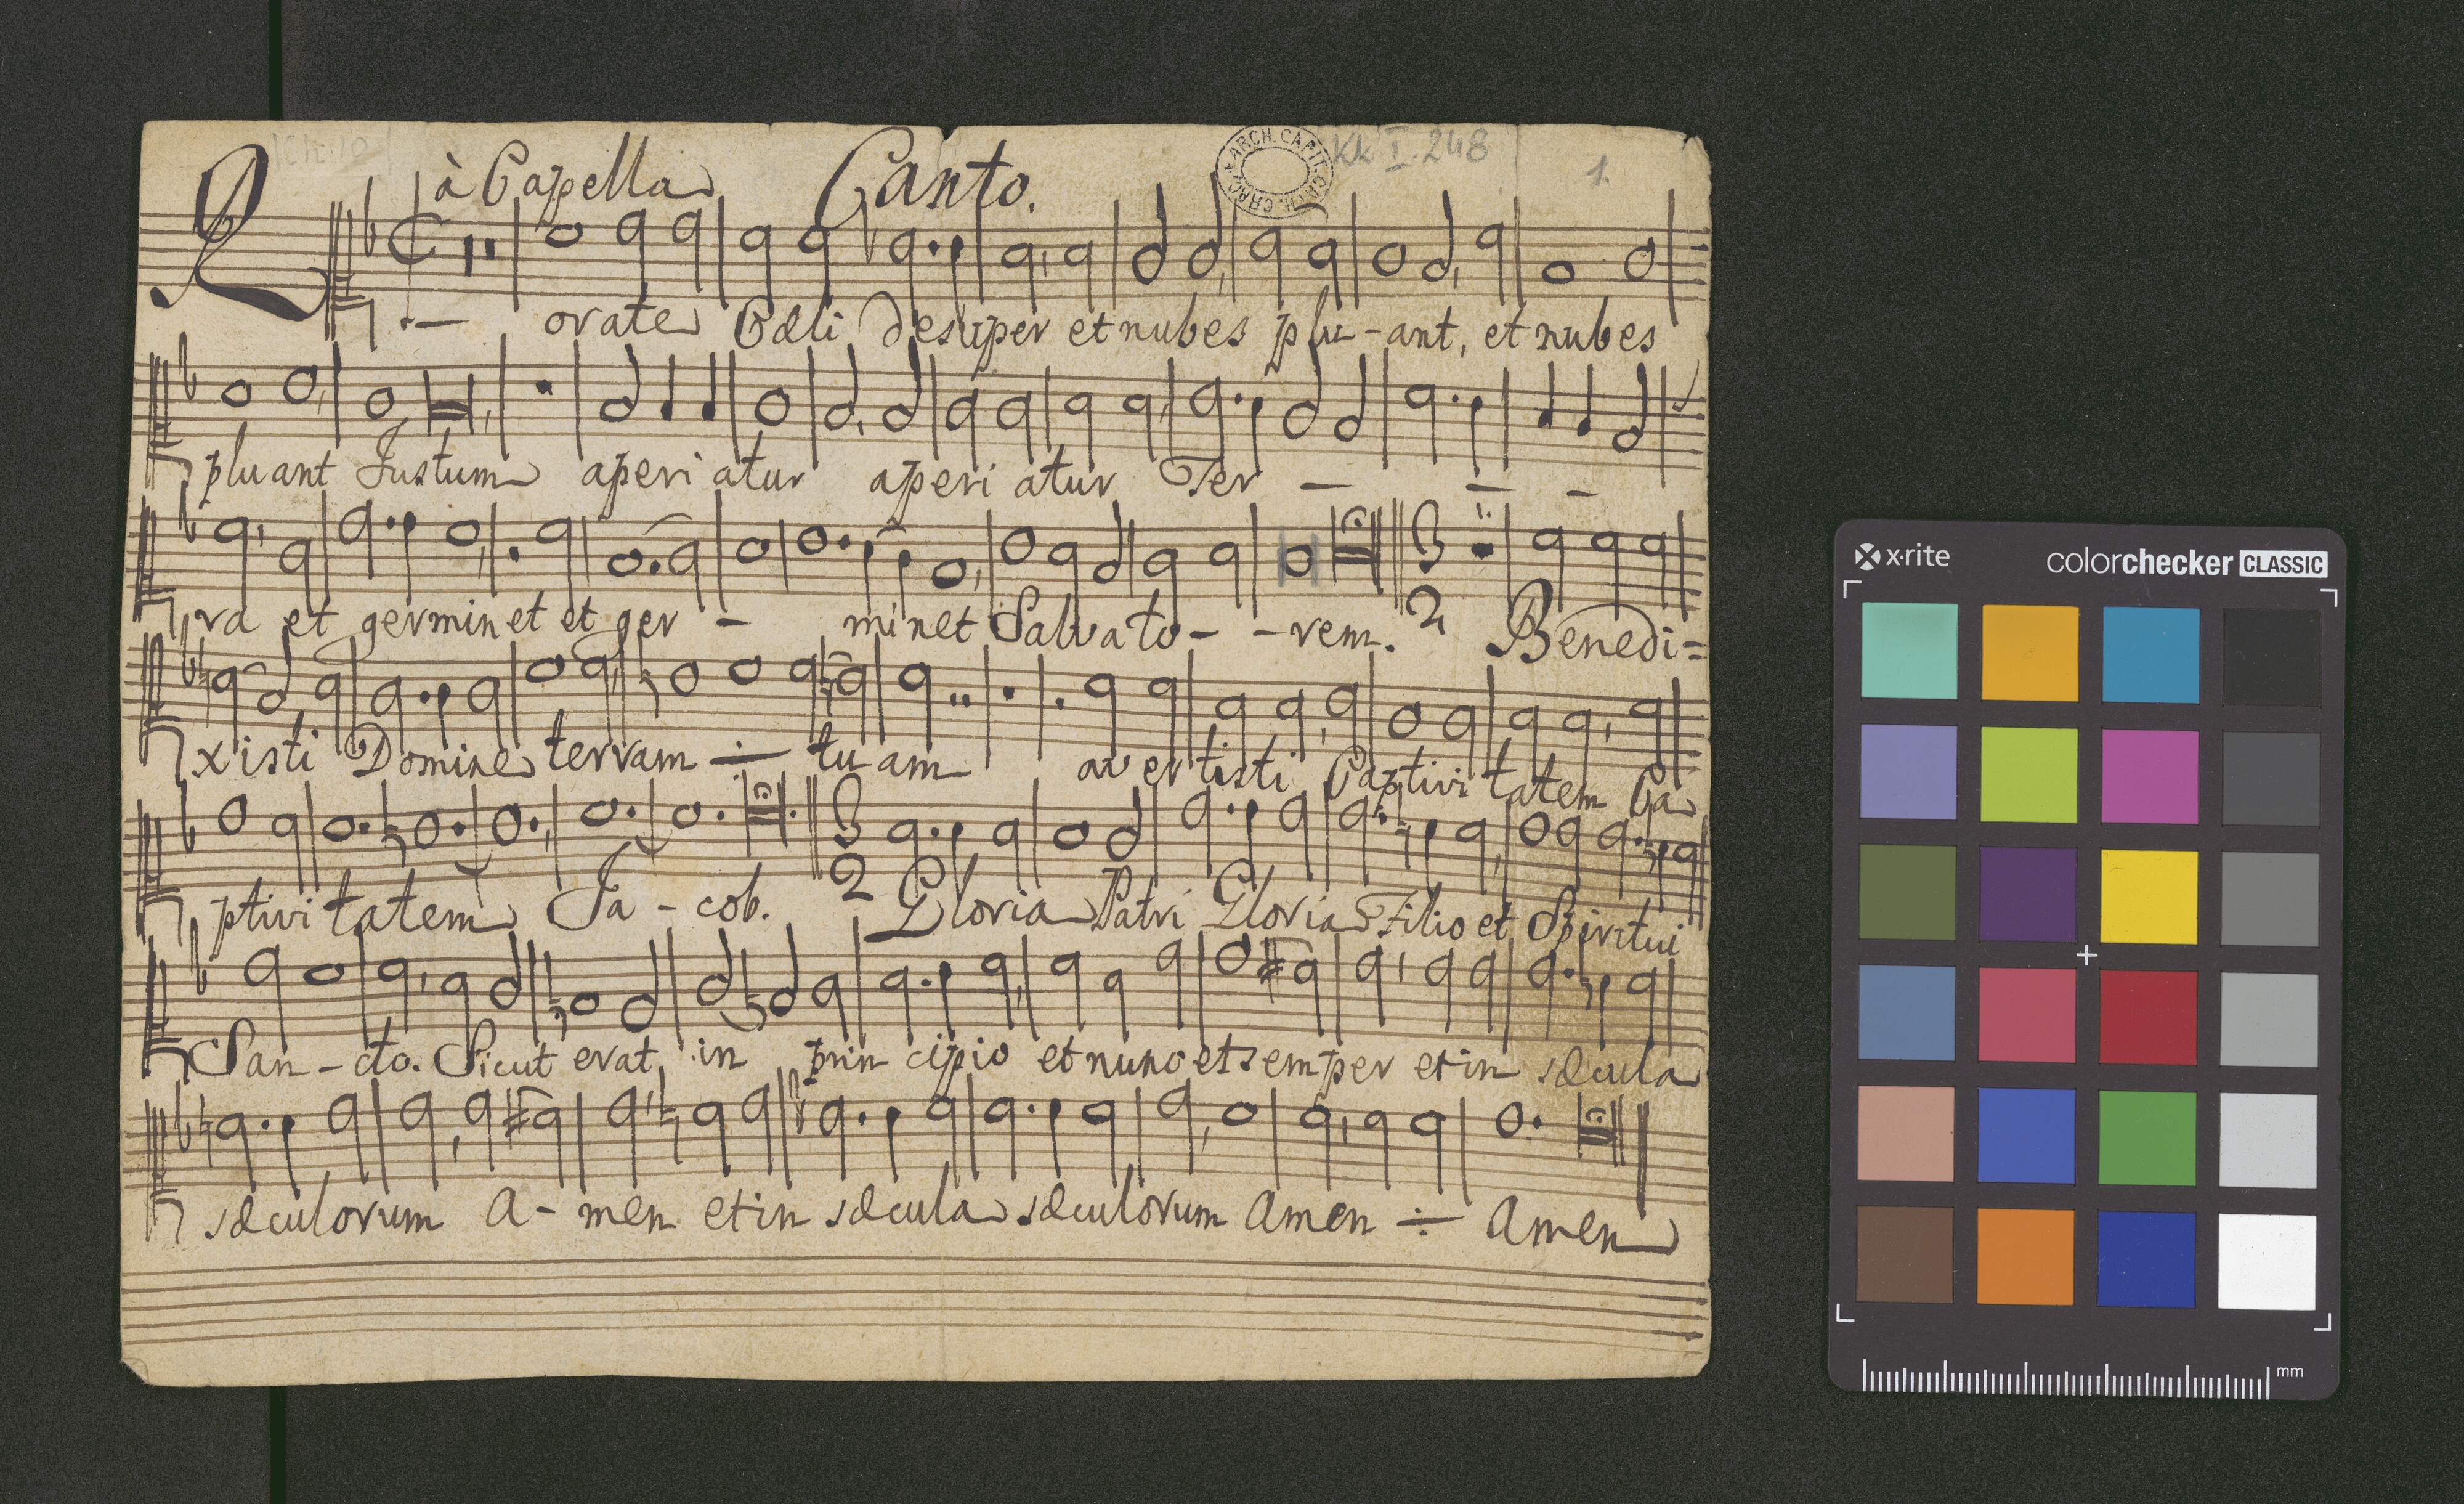 à Capella Canto. Kk I. 248 1.
ARCH. CAPIT. CATH. CRAC.
R - orate Cœli desuper et nubes plu - ant, et nubes
pluant Justum aperi atur aperi atur Ter - - -
ra et germinet et ger - minet Salvato - - rem. 3 2 Benedi =
xisti Domine terram ÷ tuam avertisti Captivitatem Ca
ptivitatem Ja - cob. 3 2 Gloria Patri Gloria Filio et Spiritui
San - cto. Sicut erat in prin cipio et nunc et semper et in sæcula
sæculorum A - men et in sæcula sæculorum Amen ÷ Amen
x·rite colorchecker CLASSIC
mm